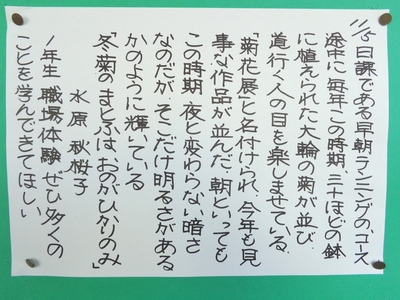 11/15 日課である早朝ランニングのコース
途中に毎年この時期、三十ほどの鉢
に植えられた大輪の菊が並び
道行く人の目を楽しませている。
「菊花展」と名付けられ、今年も見
事な作品が並んだ。朝といっても
この時期 夜と変わらない暗さ
なのだが、そこだけ明るさがある
かのように輝いている
「冬菊のまとふは、おのがひかりのみ」
水原 秋桜子
1年生 職場体験ぜひ多くの
ことを学んできてほしい